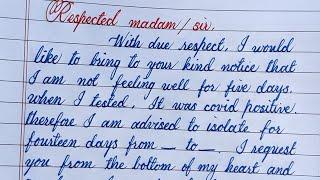 Respected madam/sir,
With due respect, I would
like to bring to your kind notice that
I am not feeling well for five days.
when I tested, It was covid positive.
therefore I am advised to isolate for
fourteen days from _ to _. I request
you from the bottom of my heart and